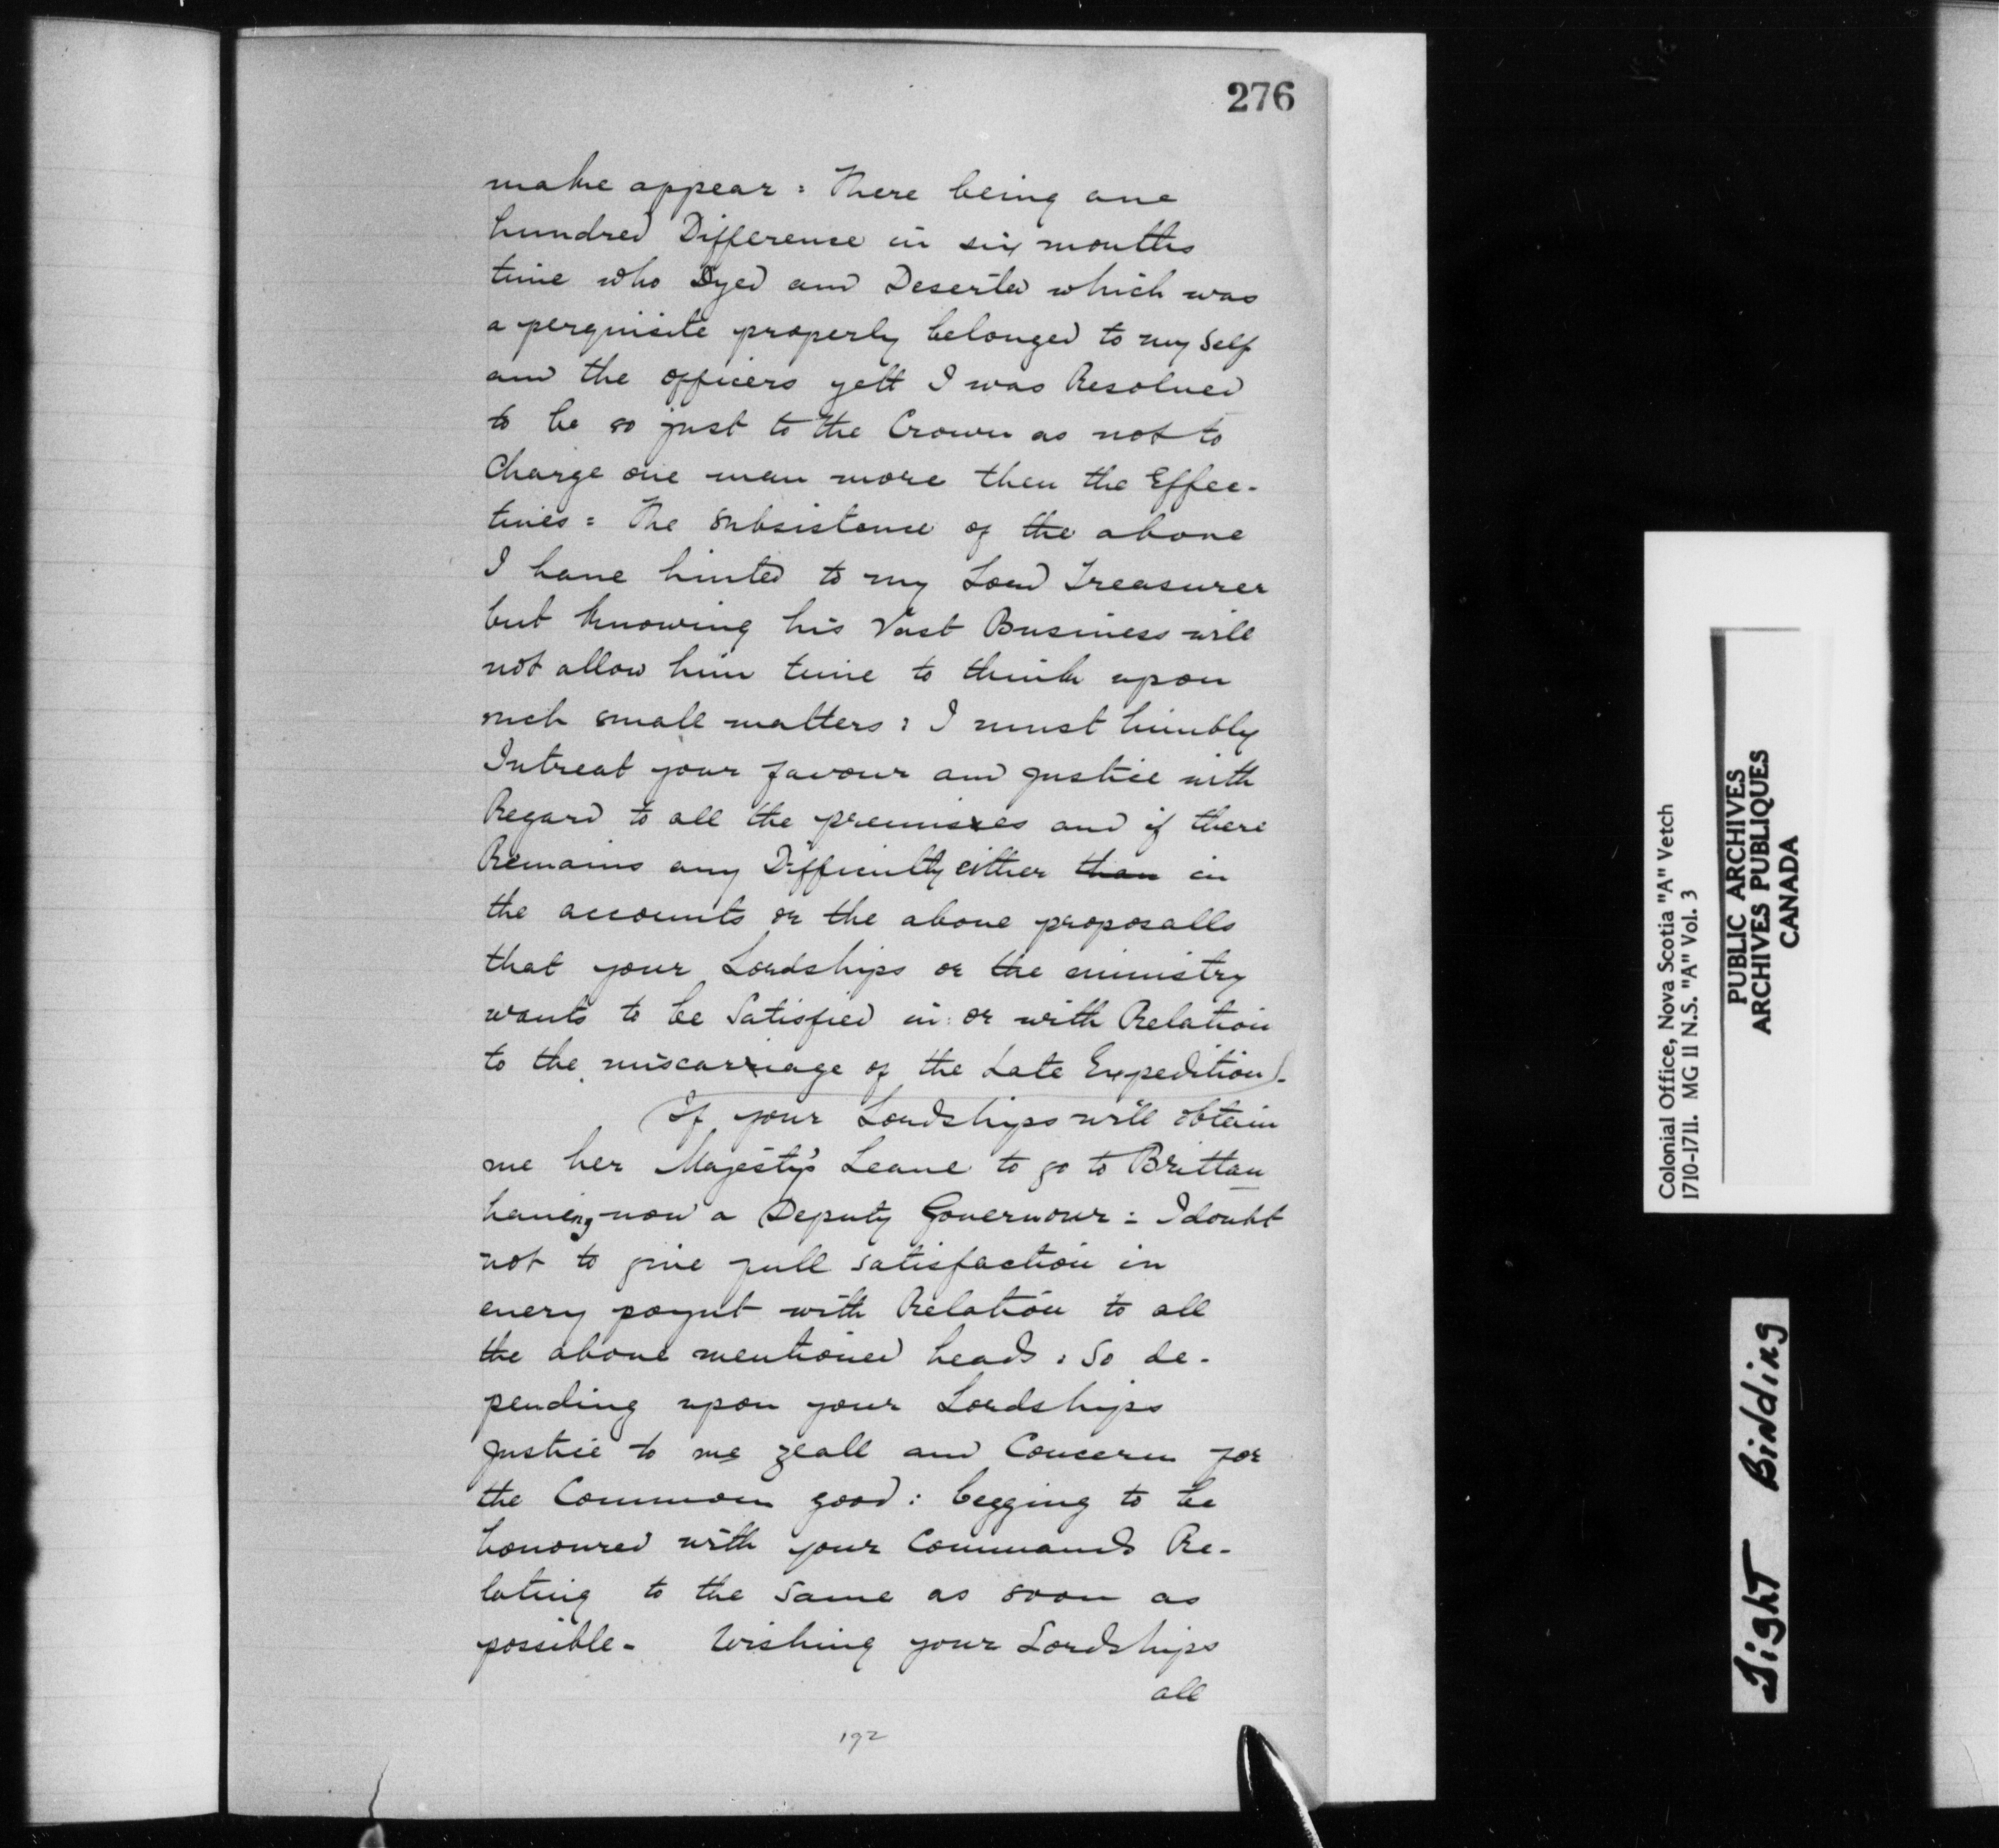 276
make appear : There being one
hundred Difference in six months
time who Dyed and Deserted which was
a perquisite properly belonged to my Self
and the officers yett I was Resolued
to be so just to the Crown as not to
Charge one man more then the Effec-
tiues = The Subsistence of the above
I haue hinted to my Lord Treasurer
but knowing his Vast Business will
not allow him time to think upon
such small matters : I must humbly
Intreat your favour and justice with
Regard to all the premisses and if there
Remains any Difficulty either than in
the accounts or the above proposalls
that your Lordships or the ministry
wants to be Satisfied in : or with Relation
to the miscarriage of the Late Expedition).
(If your Lordships will obtain
me her Majesty's Leaue to go to Brittan
haueing now a Deputy Gouernour : I doubt
not to giue full satisfaction in
euery poynt with Relation to all
the aboue mentioned heads : So de-
pending upon your Lordships
justice to me zeall and Concern for
the Common good : begging to be
honoured with your Commands Re-
lating to the same as soon as
possible - Wishing your Lordships
all
192
Colonial Office, Nova Scotia "A" Vetch
1710-1711. MG 11 N.S. "A" Vol. 3
PUBLIC ARCHIVES
ARCHIVES PUBLIQUES
CANADA
Tight Binding